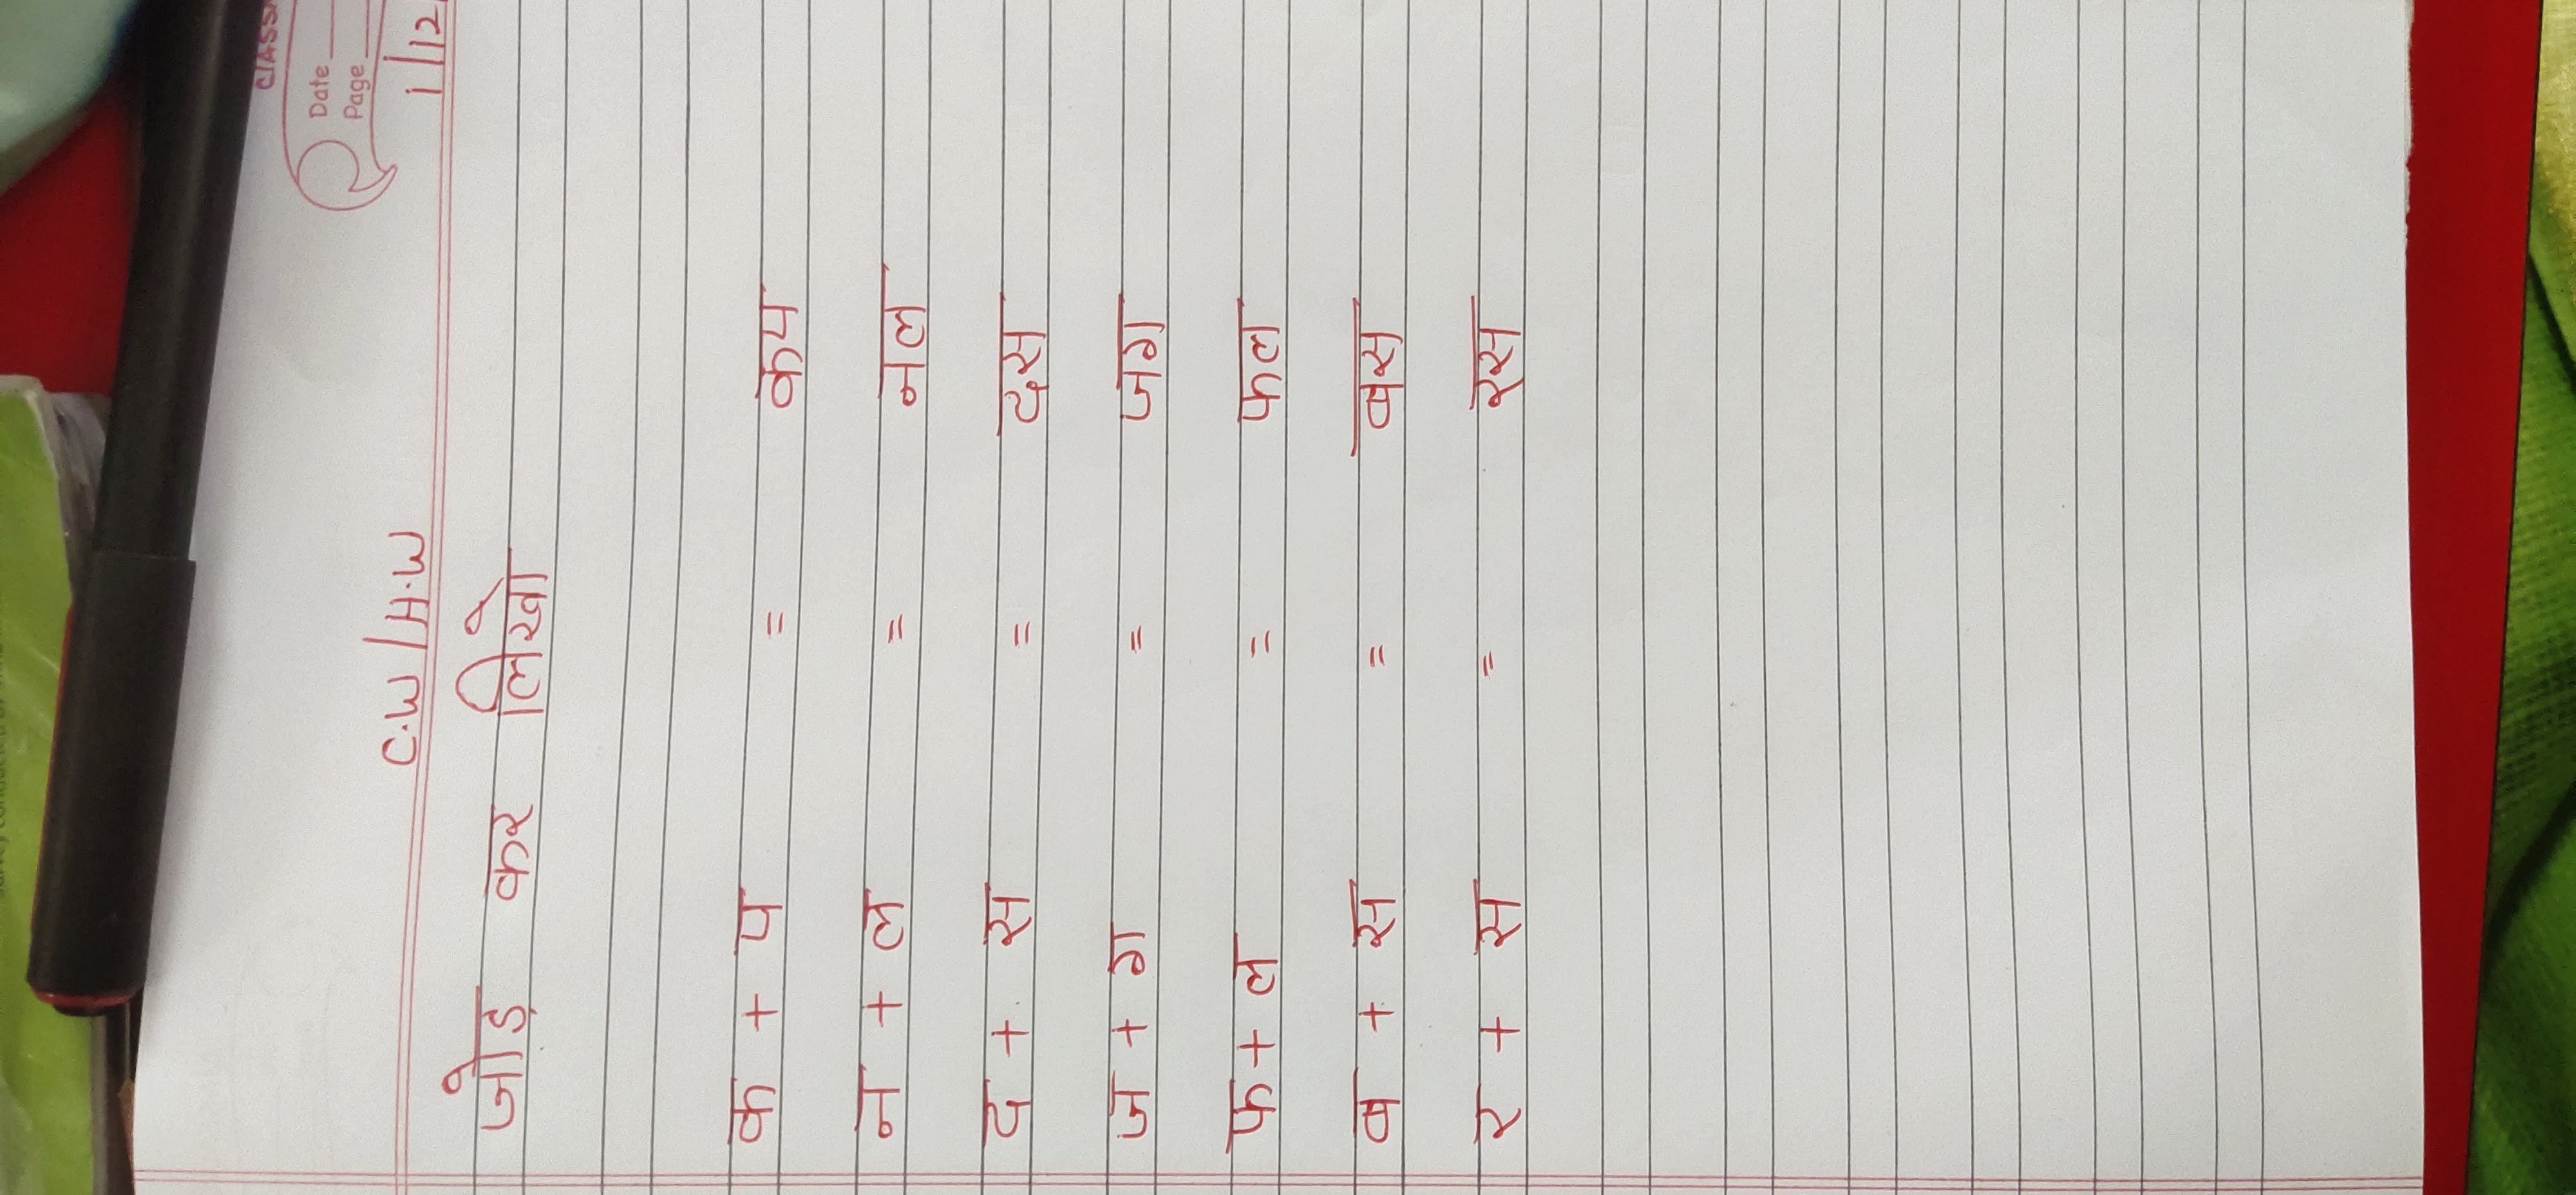 Date
Page
1/12
C.W/H.W
जोड़ कर लिखो
क + प = कप
न + ल = नल
द + स = दस
ज + ग = जग
फ + ल = फल
ब + स = बस
र + स = रस